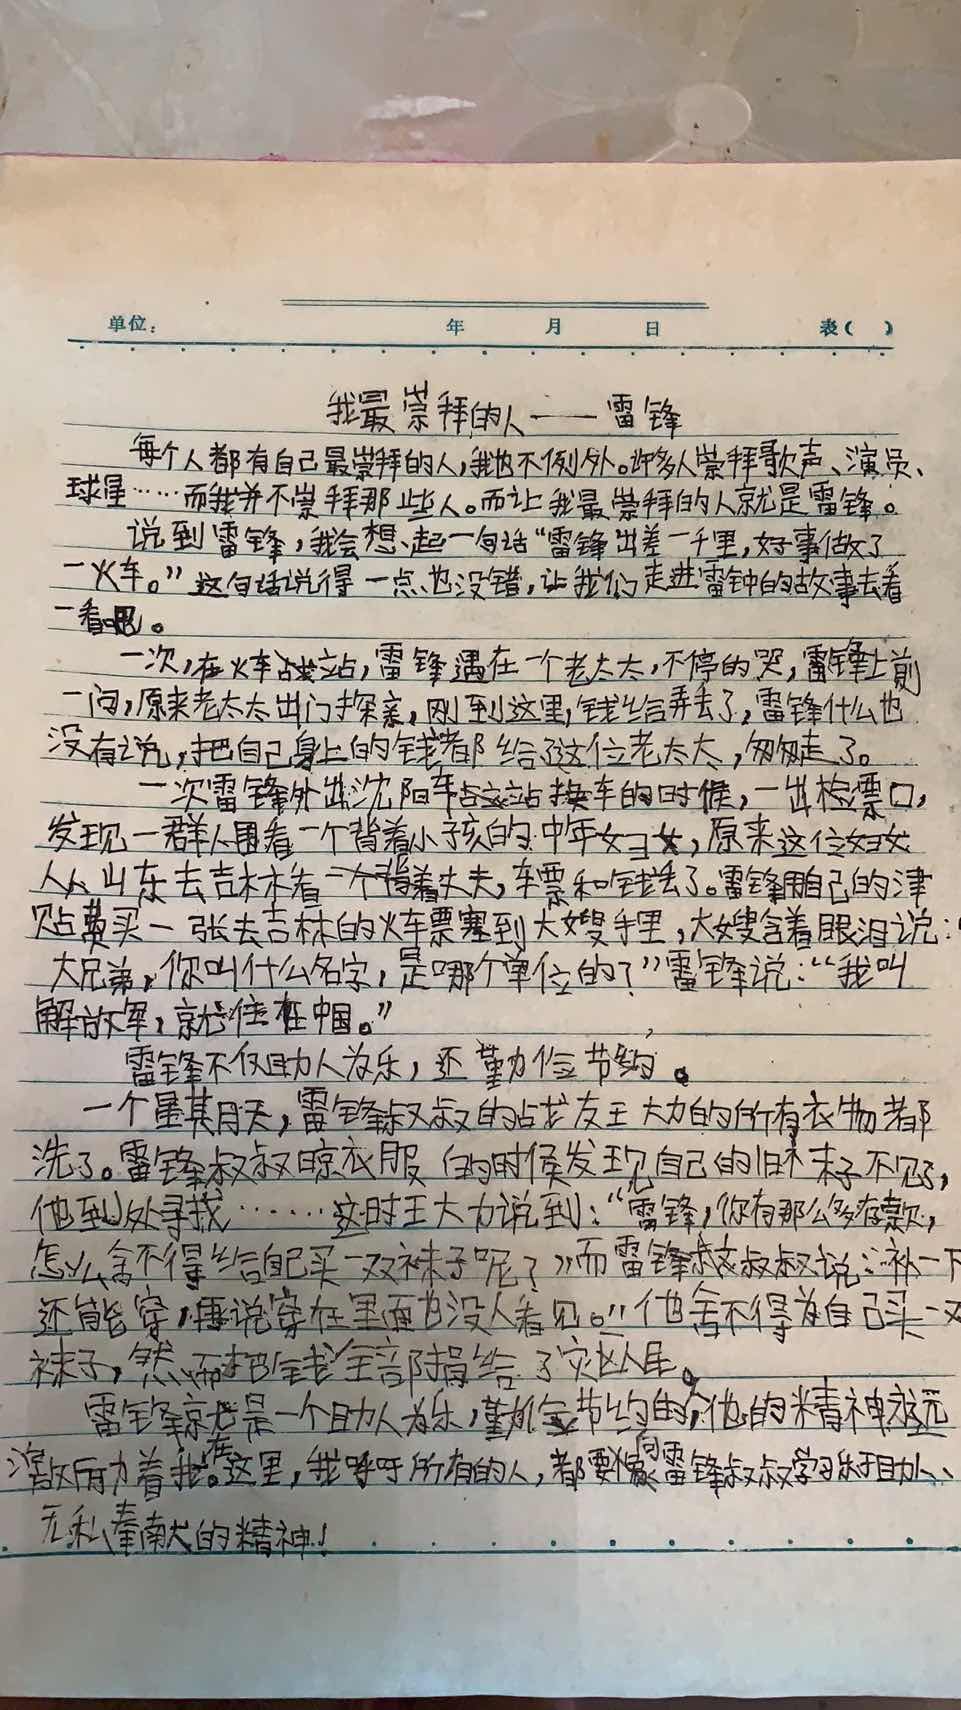 单位： 年 月 日 表( )
我最崇拜的人——雷锋
每个人都有自己最崇拜的人，我也不例外。许多人崇拜歌声、演员、
球星……而我并不崇拜那些人。而让我最崇拜的人就是雷锋。
说到雷锋，我会想起一句话“雷锋出差一千里，好事做了
一火车。”这句话说得一点也没错，让我们走进雷锋的故事去看
一看吧。
一次，在火车站，雷锋遇在一个老太太，不停的哭，雷锋上前
一问，原来老太太出门探亲，刚到这里，钱给弄丢了，雷锋什么也
没有说，把自己身上的钱都给了这位老太太，匆匆走了。
一次雷锋外出沈阳车站换车的时候，一出检票口，
发现一群人围着一个背着小孩的中年妇女，原来这位妇女
从山东去吉林看丈夫，车票和钱丢了。雷锋用自己的津
贴费买一张去吉林的火车票塞到大嫂手里，大嫂含着眼泪说：“
大兄弟，你叫什么名字，是哪个单位的？”雷锋说：“我叫
解放军，就住在中国。”
雷锋不仅助人为乐，还勤俭节约。
一个星期天，雷锋叔叔的战友王大力的所有衣物都
洗了。雷锋叔叔晾衣服的时候发现自己的旧袜子不见了，
他到处寻找……这时王大力说到：“雷锋，你有那么多存款，
怎么舍不得给自己买一双袜子呢？”而雷锋叔叔说：补一下
还能穿，再说穿在里面也没人看见。”他舍不得为自己买一双
袜子，然而把钱全部捐给了灾区人民。
雷锋就是一个助人为乐，勤俭节约的，他的精神永远
激励着我。在这里，我呼吁所有的人，都要像向雷锋叔叔学习乐于助人、
无私奉献的精神！